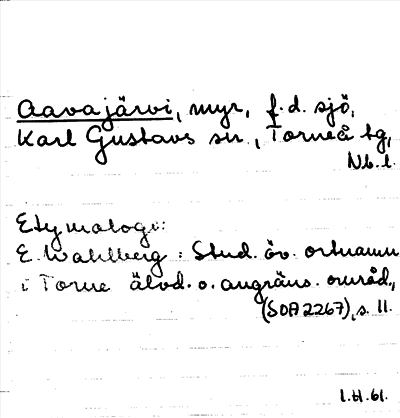 Aavajärvi, myr, f.d. sjö,
Karl Gustavs sn., Torneå tg,
Nb. l.
Etymologi:
E. Wahlberg: Stud. öv. ortnamn
i Torne älvd. o. angräns. områd.,
(SOA 2267), s. 11.
1.61.